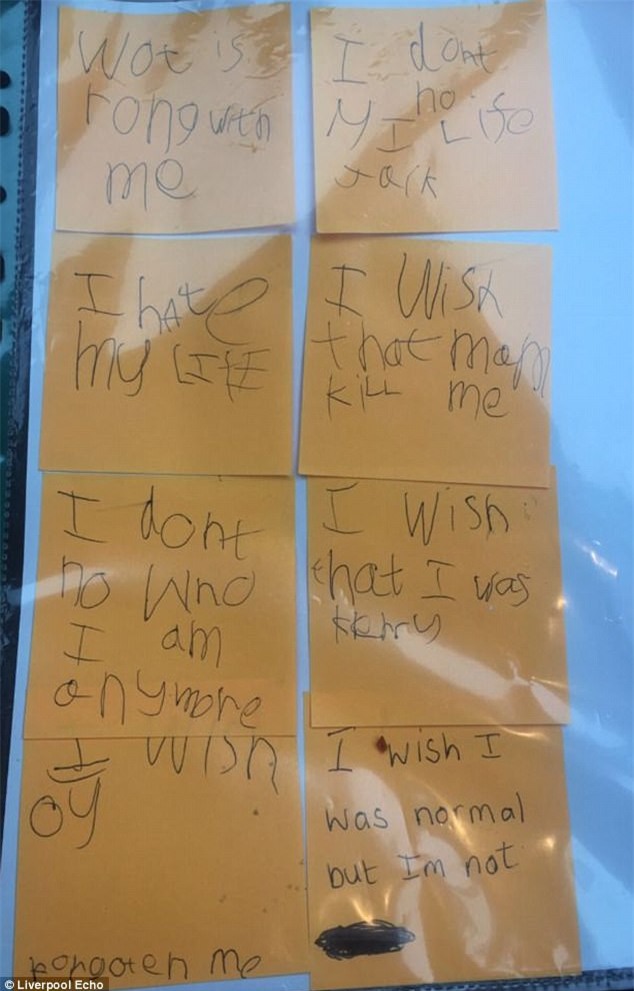 Wot is
rong with
me
I dont
no
My Life
I hate
my LIfE
I Wish
that mam
kiLL me
I dont
no Who
I am
anymore
I Wish
that I was
I Wish
oy
forgoten me
I wish I
was normal
but Im not
© Liverpool Echo